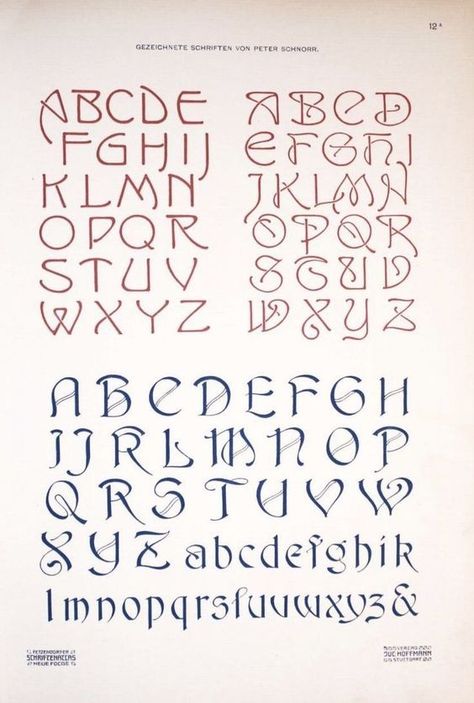 12 A
GEZEICHNETE SCHRIFTEN VON PETER SCHNORR.
ABCDE
FGHIJ
KLMN
OPQR
STUV
WXYZ
ABCD
EFGHI
JKLMN
OPQR
STUV
WXYZ
ABCDEFGH
IJKLMNOP
QRSTUVW
XYZ abcdefghik
lmnopqrstuvwxyz&
PETZENDORFER
SCHRIFTENATLAS
NEUE FOLGE
VERLAG
JUL. HOFFMANN
STUTTGART